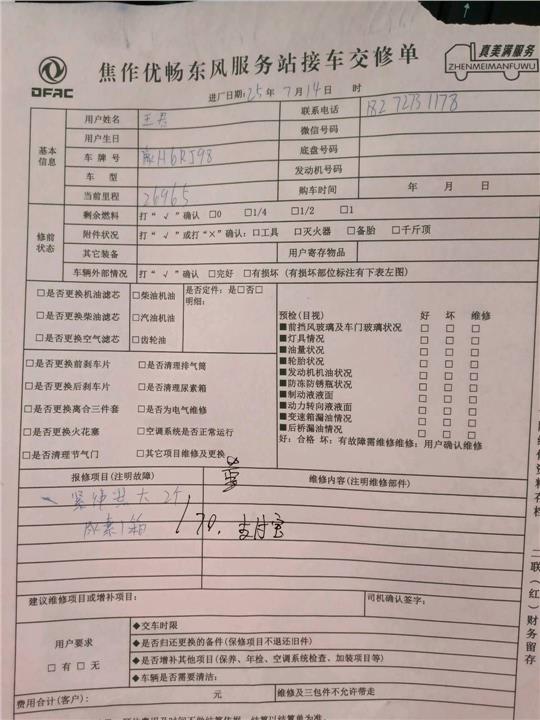 DFAC
焦作优畅东风服务站接车交修单
真美满服务
ZHENMEIMANFUWU
进厂日期：25年7月14日 时
基本信息
用户姓名 王君 联系电话 18272731178
用户生日 微信号码
车牌号 H6RJ98 底盘号码
车型 发动机号码
当前里程 26965 购车时间 年 月 日
修前状态
剩余燃料 打“√”确认 □0 □1/4 □1/2 □1
附件状况 打“√”或打“×”确认：□工具 □灭火器 □备胎 □千斤顶
其它装备 用户寄存物品
车辆外部情况 打“√”确认 □完好 □有损坏（有损坏部位标注有下表左图）
□是否更换机油滤芯 □柴油机油 是否定件：是□否□
明细：
□是否更换柴油滤芯 □汽油机油
□是否更换空气滤芯 □齿轮油
预检（目视） 好 坏 维修
■前挡风玻璃及车门玻璃状况 □ □ □
■灯具情况 □ □ □
■油量状况 □ □ □
■轮胎状况 □ □ □
■发动机机油状况 □ □ □
■防冻防锈瓶状况 □ □ □
■制动液液面 □ □ □
■动力转向液液面 □ □ □
■变速箱漏油情况 □ □ □
■后桥漏油情况 □ □ □
好：合格 坏：有故障需维修维修：用户确认维修
□是否更换前刹车片 □是否清理排气筒
□是否更换后刹车片 □是否清理尿素箱
□是否更换离合三件套 □是否为电气维修
□是否更换火花塞 □空调系统是否正常运行
□是否清理节气门 □其它项目维修及更换
报修项目（注明故障） 维修内容（注明维修部件）
大 2个
尿素1箱 170. 支付宝
建议维修项目或增补项目： 司机确认签字：
用户要求
□有□无
◆交车时限
◆是否归还更换的备件（保修项目不退还旧件）
◆是否增补其他项目（保养、年检、空调系统检查、加装项目等）
◆车辆是否需要清洁：
费用合计（客户）： 元 维修及三包件不允许带走
二联（红）财务留存